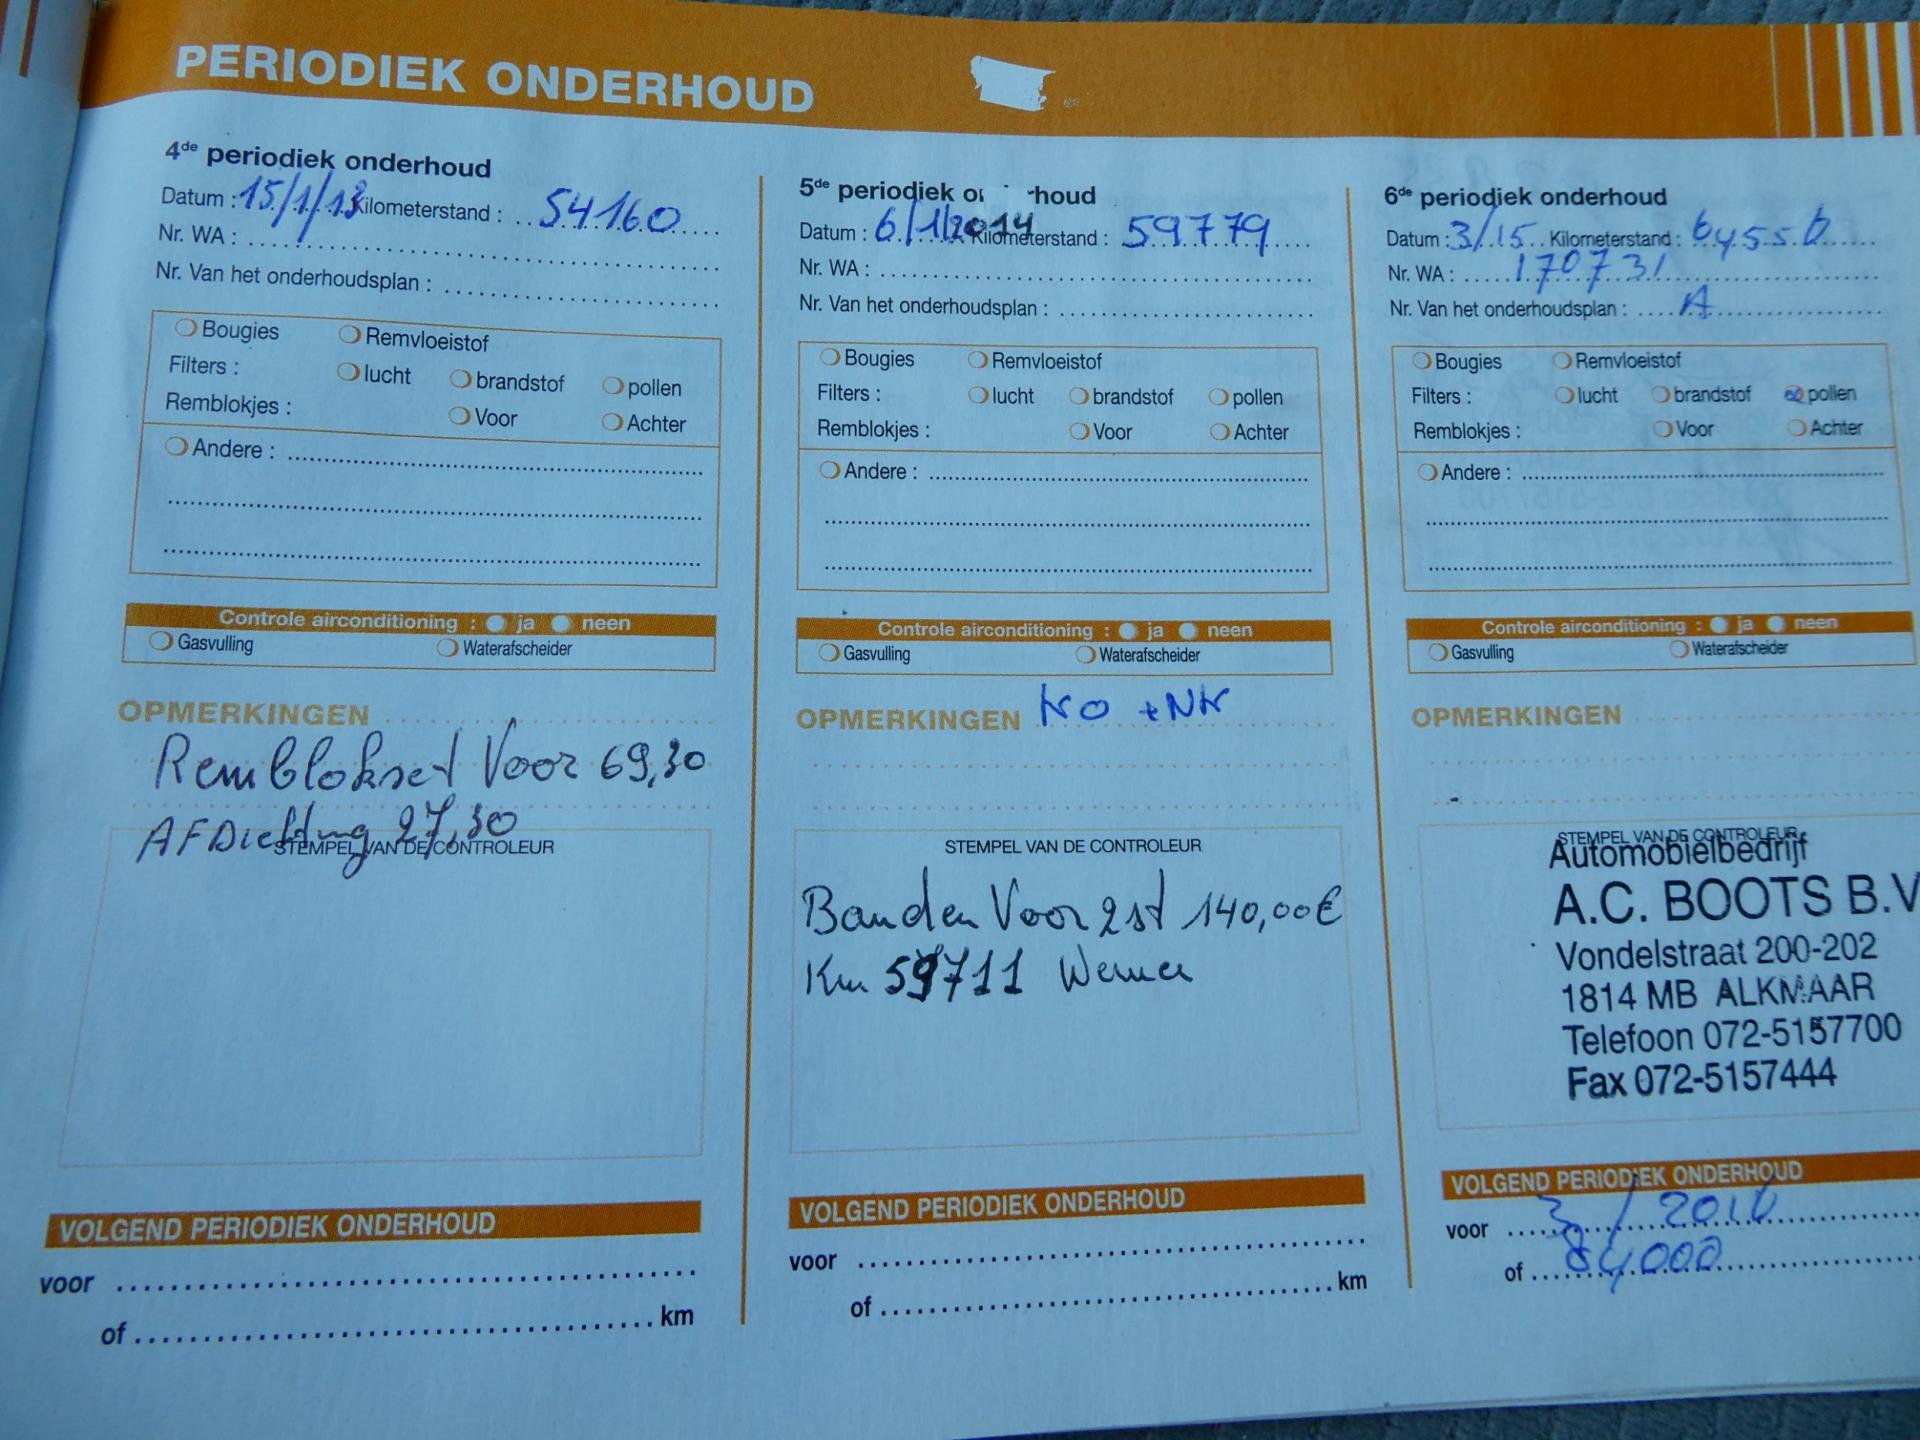 PERIODIEK ONDERHOUD
4de periodiek onderhoud
Datum : 15/1/13 Kilometerstand : 54160
Nr. WA :
Nr. Van het onderhoudsplan :
Bougies Remvloeistof
Filters : lucht brandstof pollen
Remblokjes : Voor Achter
Andere :
Controle airconditioning : ja neen
Gasvulling Waterafscheider
OPMERKINGEN
Remblokset Voor 69,30
AFDichting 27,30
STEMPEL VAN DE CONTROLEUR
VOLGEND PERIODIEK ONDERHOUD
voor
of km
5de periodiek onderhoud
Datum : 6/1/2014 Kilometerstand : 59779
Nr. WA :
Nr. Van het onderhoudsplan :
Bougies Remvloeistof
Filters : lucht brandstof pollen
Remblokjes : Voor Achter
Andere :
Controle airconditioning : ja neen
Gasvulling Waterafscheider
OPMERKINGEN
STEMPEL VAN DE CONTROLEUR
Banden Voor 2st 140,00€
Km 59711
VOLGEND PERIODIEK ONDERHOUD
voor
of km
6de periodiek onderhoud
Datum : 3/15 Kilometerstand : 64550
Nr. WA : 170731
Nr. Van het onderhoudsplan : A
Bougies Remvloeistof
Filters : lucht brandstof pollen
Remblokjes : Voor Achter
Andere :
Controle airconditioning : ja neen
Gasvulling Waterafscheider
OPMERKINGEN
STEMPEL VAN DE CONTROLEUR
Automobielbedrijf
A.C. BOOTS B.V
Vondelstraat 200-202
1814 MB ALKMAAR
Telefoon 072-5157700
Fax 072-5157444
VOLGEND PERIODIEK ONDERHOUD
voor 3/2016
of 84000